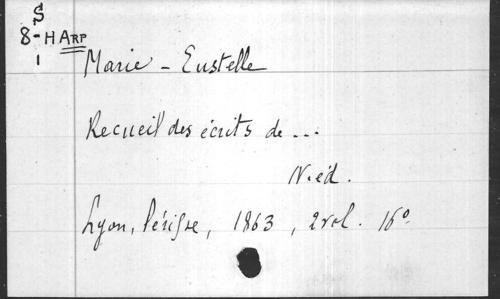 S
8-H ARP
1
Marie - Eustelle
Recueil des écrits de ...
N. éd.
Lyon, Périsse, 1863, 2 vol. 16°.